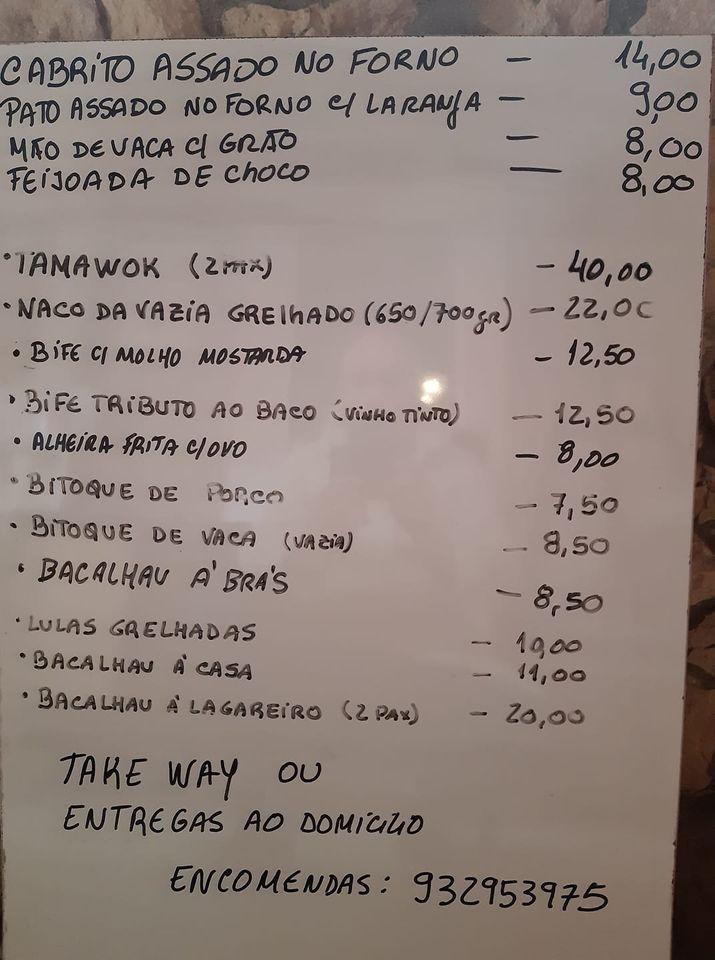 CABRITO ASSADO NO FORNO — 14,00
PATO ASSADO NO FORNO C/ LARANJA — 9,00
MÃO DE VACA C/ GRÃO — 8,00
FEIJOADA DE CHOCO — 8,00
• TAMAWOK (2 - 40,00
• NACO DA VAZIA GRELHADO (650/700gr) - 22,00
• BIFE C/ MOLHO MOSTARDA - 12,50
• BIFE TRIBUTO AO BACO (VINHO TINTO) - 12,50
• ALHEIRA FRITA C/OVO - 8,00
• BITOQUE DE PORCO - 7,50
• BITOQUE DE VACA (VAZIA) - 8,50
• BACALHAU A' BRA'S - 8,50
• LULAS GRELHADAS - 10,00
• BACALHAU À CASA - 11,00
• BACALHAU À LAGAREIRO (2 PAX) - 20,00
TAKE WAY OU
ENTREGAS AO DOMICILIO
ENCOMENDAS: 932953975